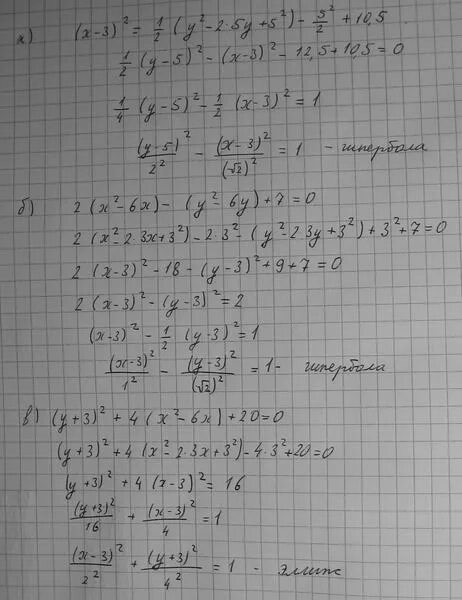 а) (x-3)² = 1/2 (y² - 2·5y + 5²) - 5²/2 + 10,5
1/2 (y-5)² - (x-3)² - 12,5 + 10,5 = 0
1/4 (y-5)² - 1/2 (x-3)² = 1
(y-5)²/2² - (x-3)²/(√2)² = 1 - гипербола
б) 2 (x² - 6x) - (y² - 6y) + 7 = 0
2 (x² - 2·3x + 3²) - 2·3² - (y² - 2·3y + 3²) + 3² + 7 = 0
2 (x-3)² - 18 - (y-3)² + 9 + 7 = 0
2 (x-3)² - (y-3)² = 2
(x-3)² - 1/2 (y-3)² = 1
(x-3)²/1² - (y-3)²/(√2)² = 1 - гипербола
в) (y+3)² + 4 (x² - 6x) + 20 = 0
(y+3)² + 4 (x² - 2·3x + 3²) - 4·3² + 20 = 0
(y+3)² + 4 (x-3)² = 16
(y+3)²/16 + (x-3)²/4 = 1
(x-3)²/2² + (y+3)²/4² = 1 - эллипс